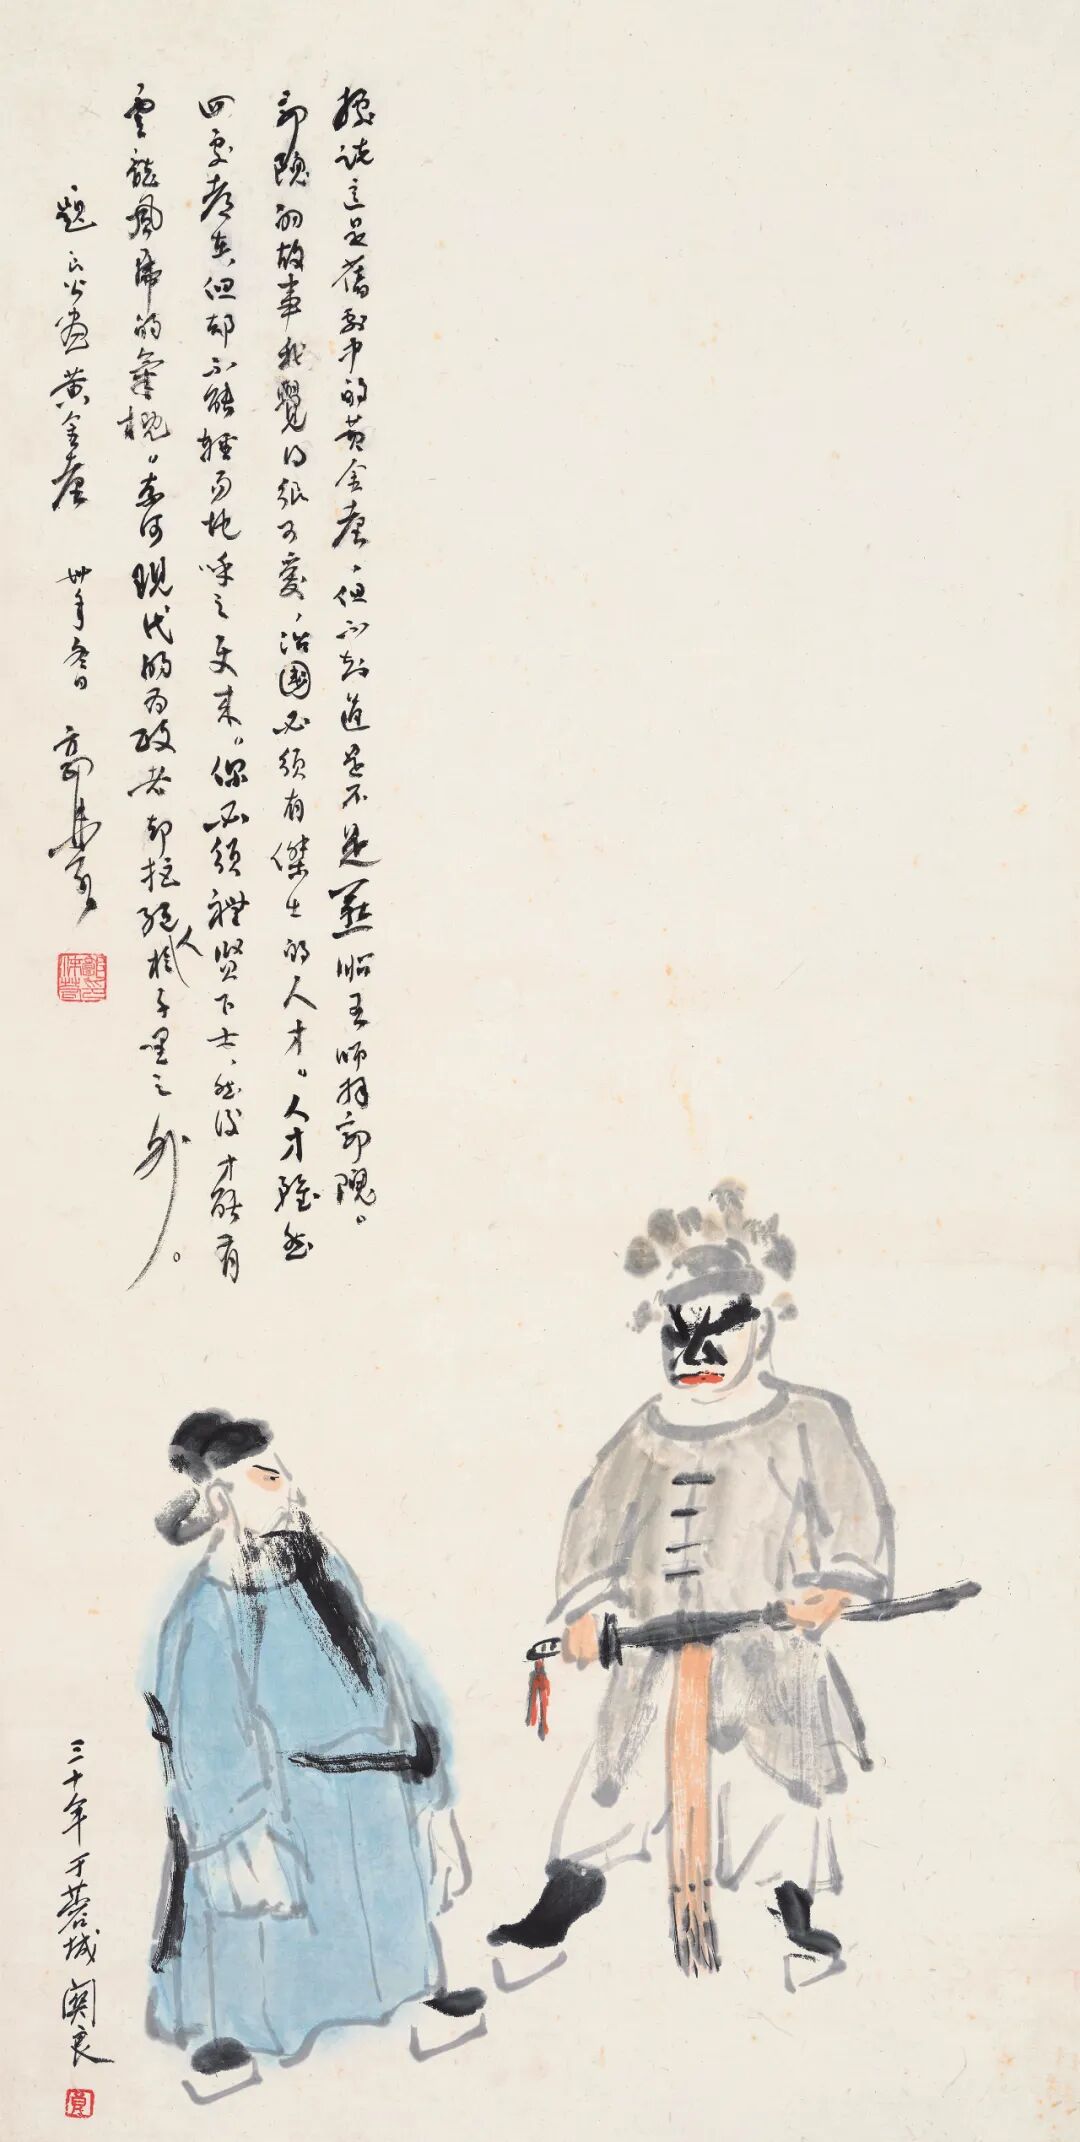 據說這是舊戲中的黃金臺，但不知道是不是燕昭王師拜郭隗。
郭隗的故事我覺得很可愛，治國必須有傑士的人才。人才雖然
四處都有但却不能輕易地呼之更來。你必須禮賢下士、然後才能有
雲龍風虎的氣概。奈何現代的為政者却拒絕人於千里之外。
題良公畫黃金臺 卅年冬日 郭沫若
三十年于蓉城 關良